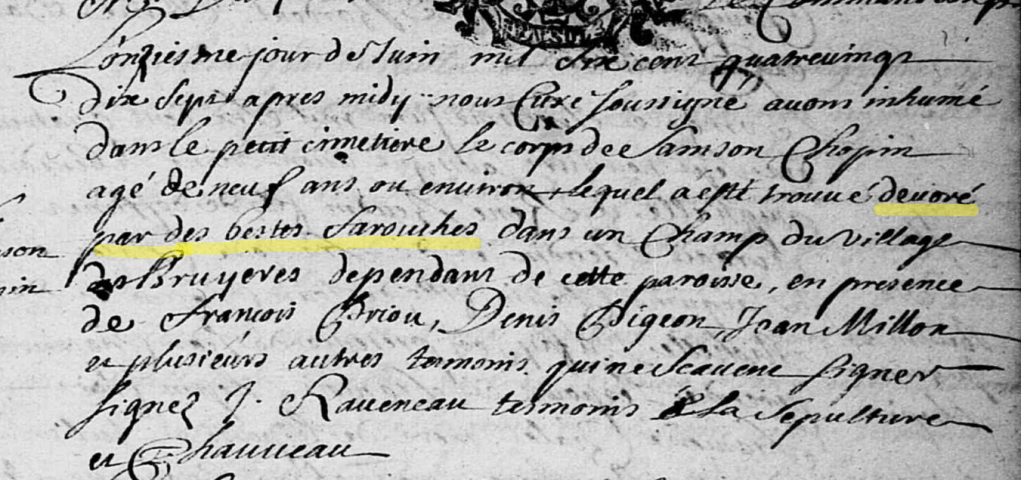 L'onziesme jour de Juin mil six cent quatrevingt
dix sept apres midy nous Curé soussigné avons inhumé
dans le petit cimetiere le corps de Samson Chopin
agé de neuf ans ou environ lequel a esté trouvé devoré
par des bestes farouches dans un Champ du village
des Bruyeres dependant de cette paroisse, en presence
de François Priou, Denis Pigeon, Jean Millon
et plusieurs autres tesmoins qui ne scavent signer
signez J. Raveneau tesmoins à la sepulture
et Chauveau